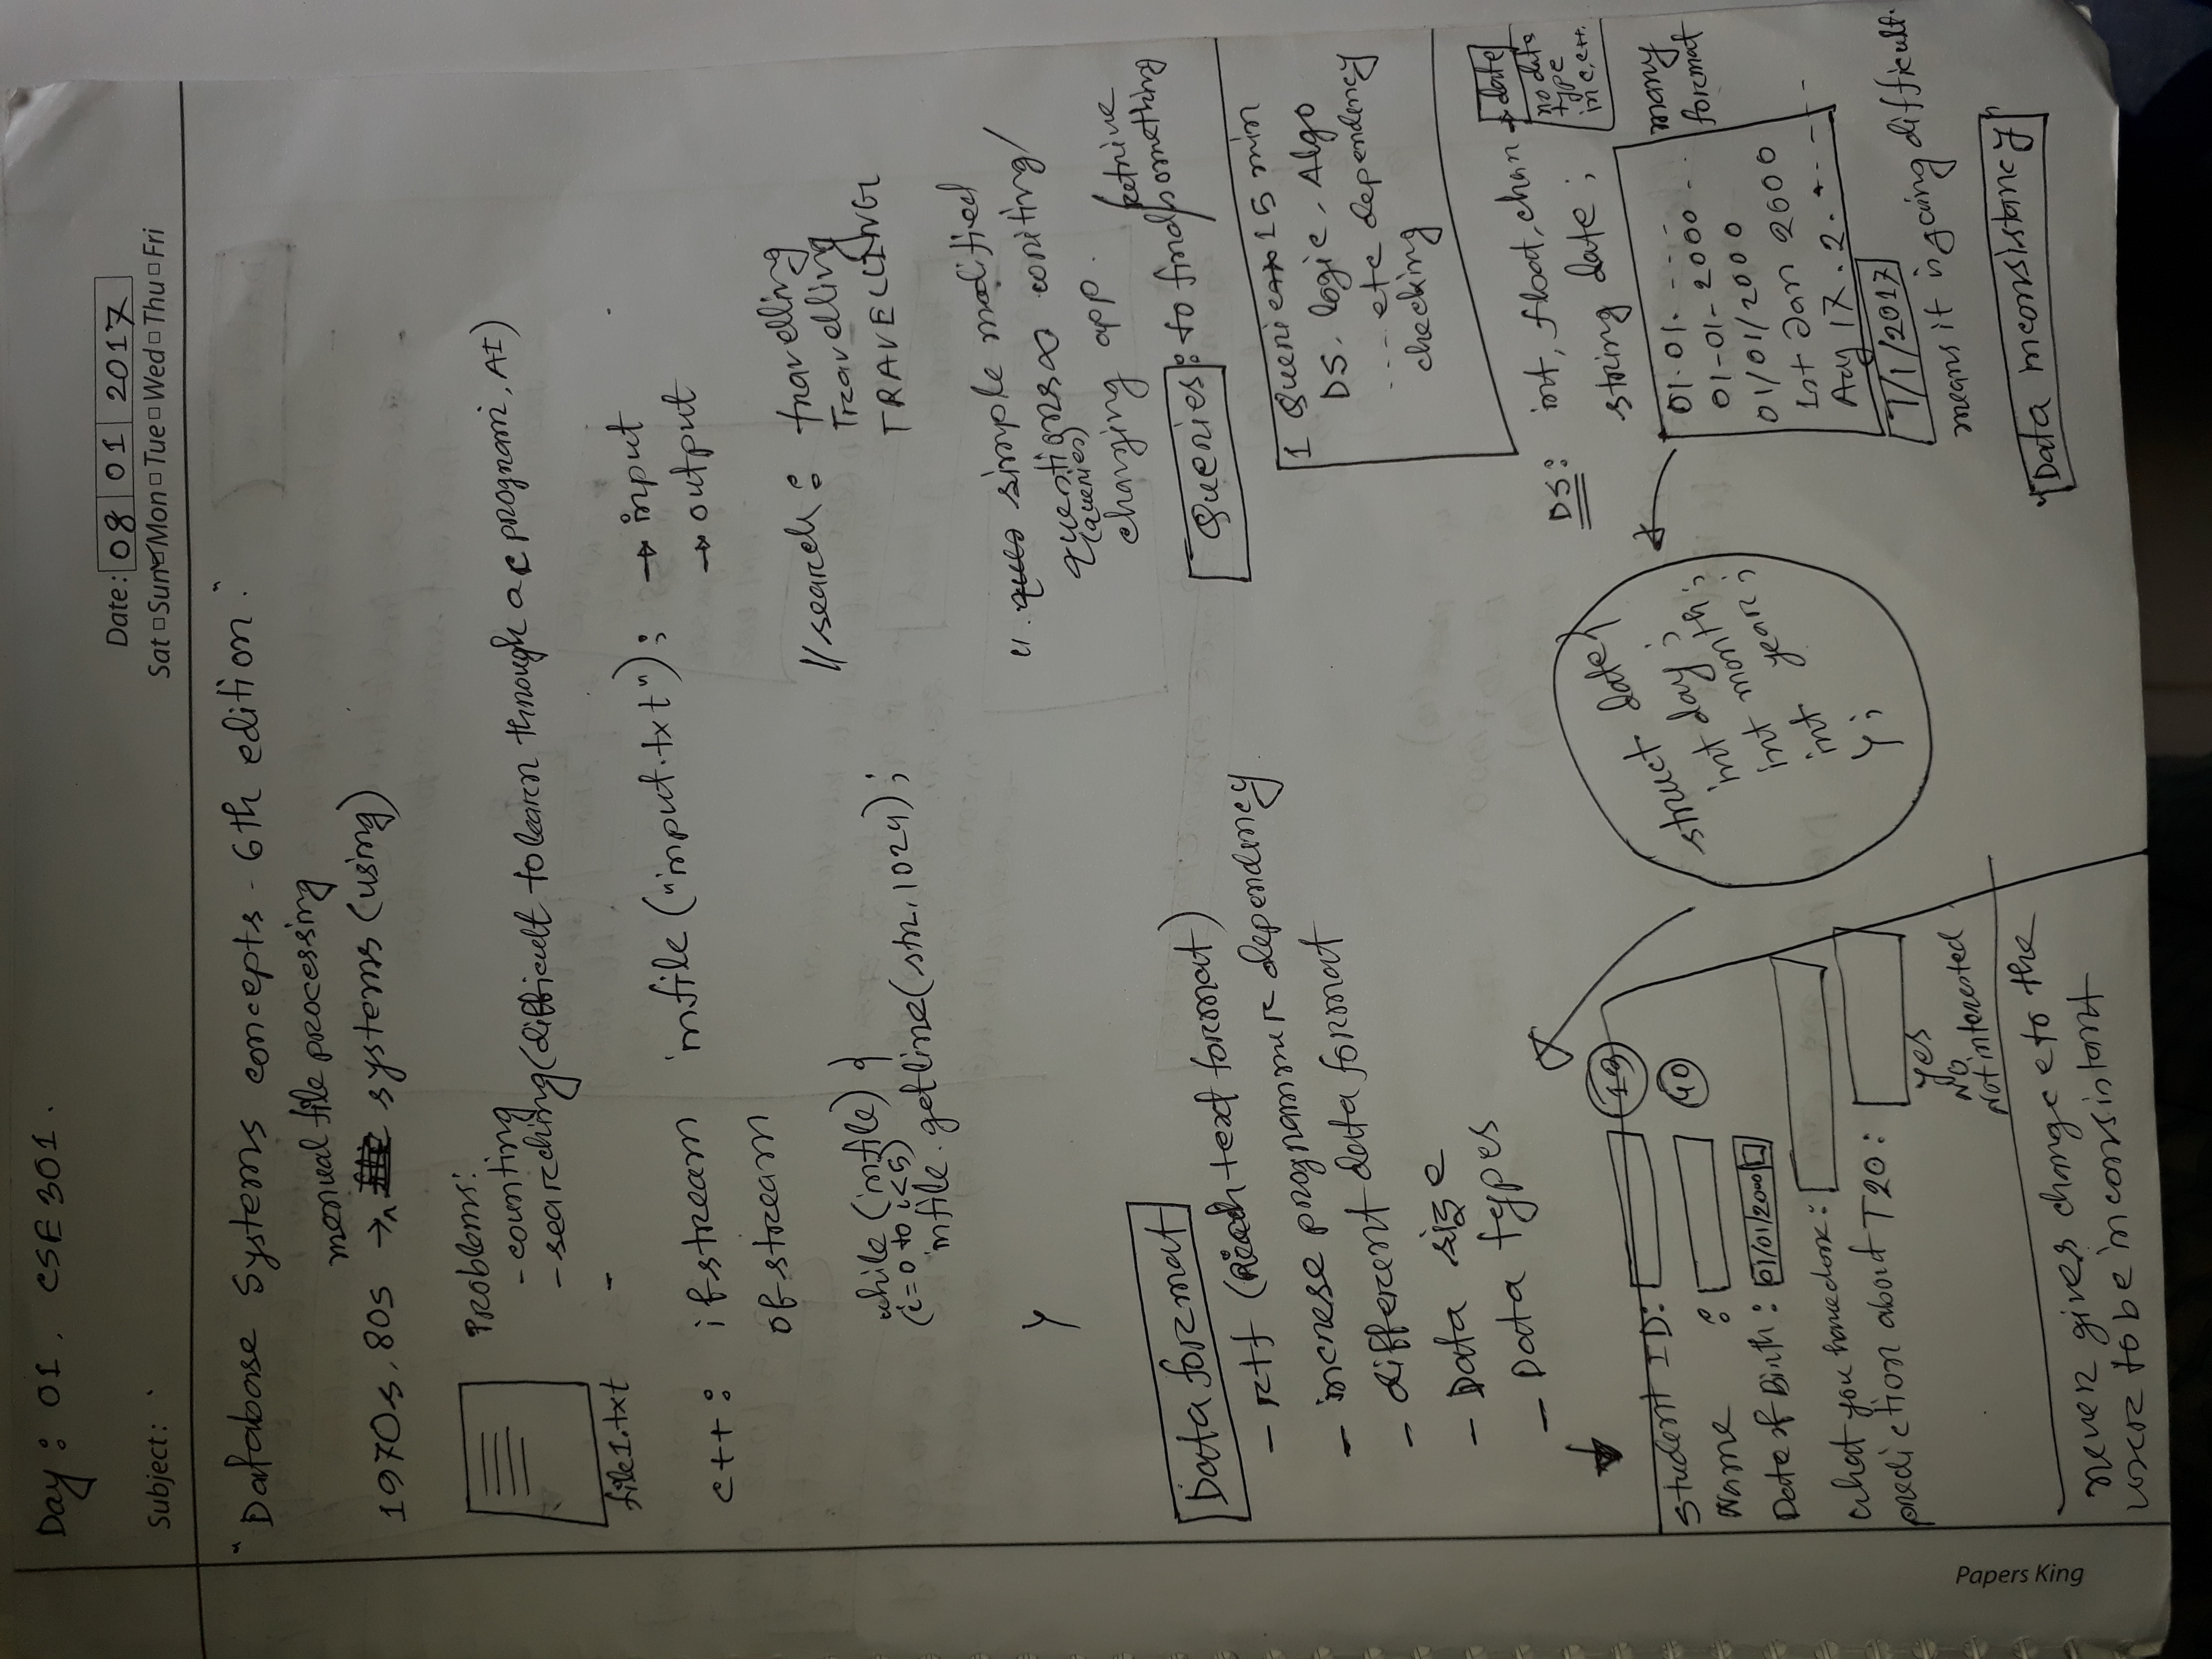 Day : 01. CSE 301.
Date: 08 01 2017
Subject:
Sat Sun Mon Tue Wed Thu Fri
"Database Systems concepts - 6th edition."
menual file processing
1970s, 80s → systems (using)
Problems:
- counting
- searching (difficult to learn through a c program, AI)
-
file1.txt
c++ : ifstream infile ("input.txt"); → input
→ output
ofstream
while (infile) {
(i=0 to i<5)
infile.getline(str, 1024);
}
// search : travelling
Travelling
TRAVELLING
simple modified
questions writing/
(queries)
changing app.
Queries : to find/retrive something
1 Queries 15 min
DS, logic, Algo
.... etc dependency
checking
Data format
- rtf (Reach text format)
- increse programmer dependency
- different data format
- Data size
- Data types
DS: int, float, char → date
no data
type
in c, c++.
string date ;
01.01. - - -
01-01-2000 - .
01/01/2000
1st Jan 2000
Aug 17. 2.
many
format
7/1/2017
means it is going difficult.
"Data inconsistancy"
struct date{
int day ;
int month ;
int year ;
};
Student ID: 13
Name : 40
Date of Birth : 01/01/2000
What you have done :
prediction about T20 :
Yes
No
Not interested
never gives change to the
user to be inconsistant
Papers King